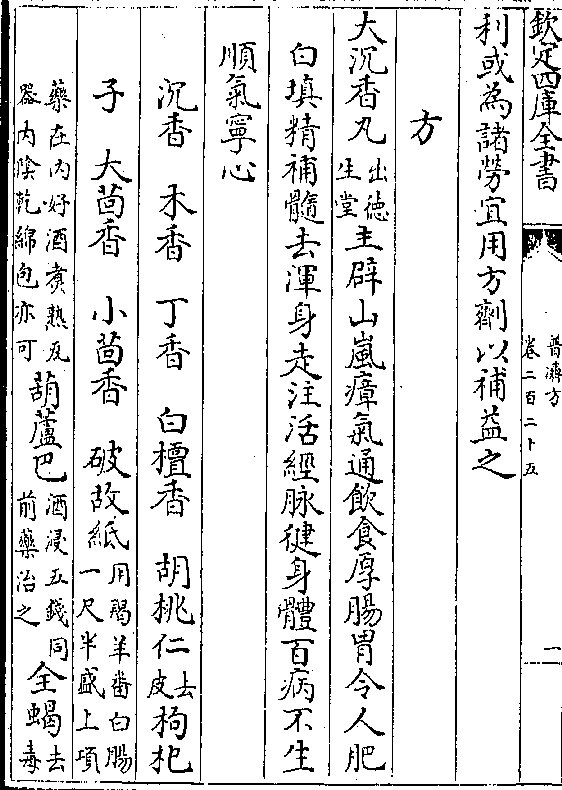 欽定四庫全書
普濟方
卷二百二十五
一
利或為諸勞宜用方劑以補益之
方
大沉香丸出德生堂主辟山嵐瘴氣通飲食厚腸胃令人肥
白填精補髓去渾身走注活經脉健身體百病不生
順氣寧心
沉香　木香　丁香　白檀香　胡桃仁去皮枸𣏌
子　大茴香　小茴香　破故紙用羯羊番白腸一尺半盛上項
藥在内好酒煮熟瓦器内陰乾綿包亦可葫蘆巴酒浸五錢同前藥治之全蝎去毒